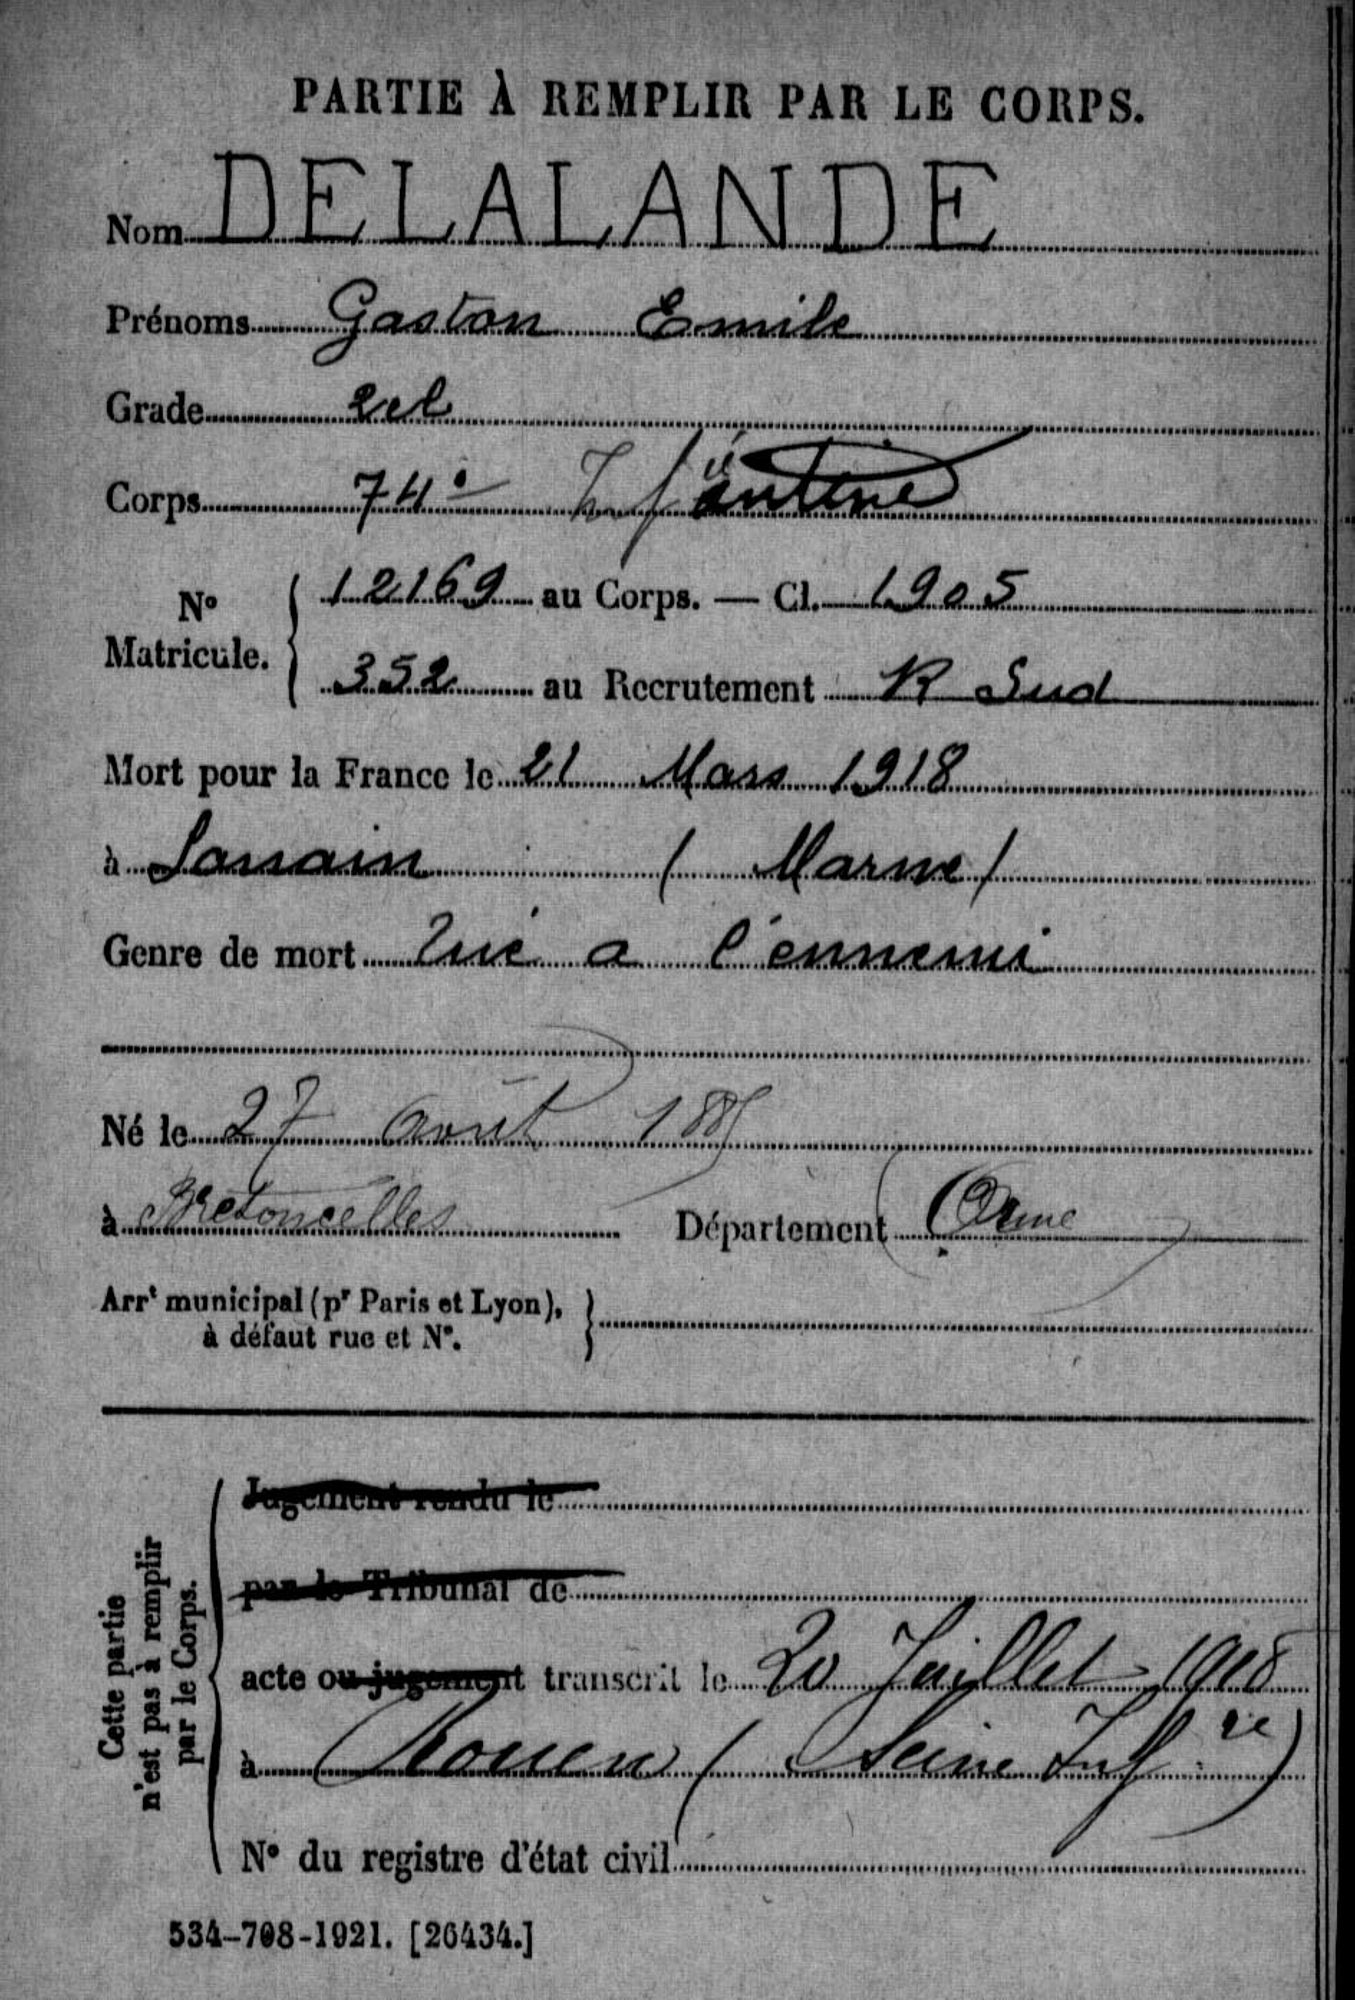 PARTIE À REMPLIR PAR LE CORPS.
Nom DELALANDE
Prénoms Gaston Emile
Grade 2cl
Corps 74e Infanterie
No Matricule. 12169 au Corps. — Cl. 1905
352 au Recrutement R Sud
Mort pour la France le 21 Mars 1918
à (Marne)
Genre de mort Tué a l'ennemi
Né le 27 Août 1885
à Bretoncelles Département Orne
Arrt municipal (pr Paris et Lyon),
à défaut rue et No.
Cette partie
n'est pas à remplir
par le Corps.
Jugement rendu le
par le Tribunal de
acte ou jugement transcrit le 20 Juillet 1918
à Rouen (Seine Infre)
No du registre d'état civil
534-708-1921. [26434.]